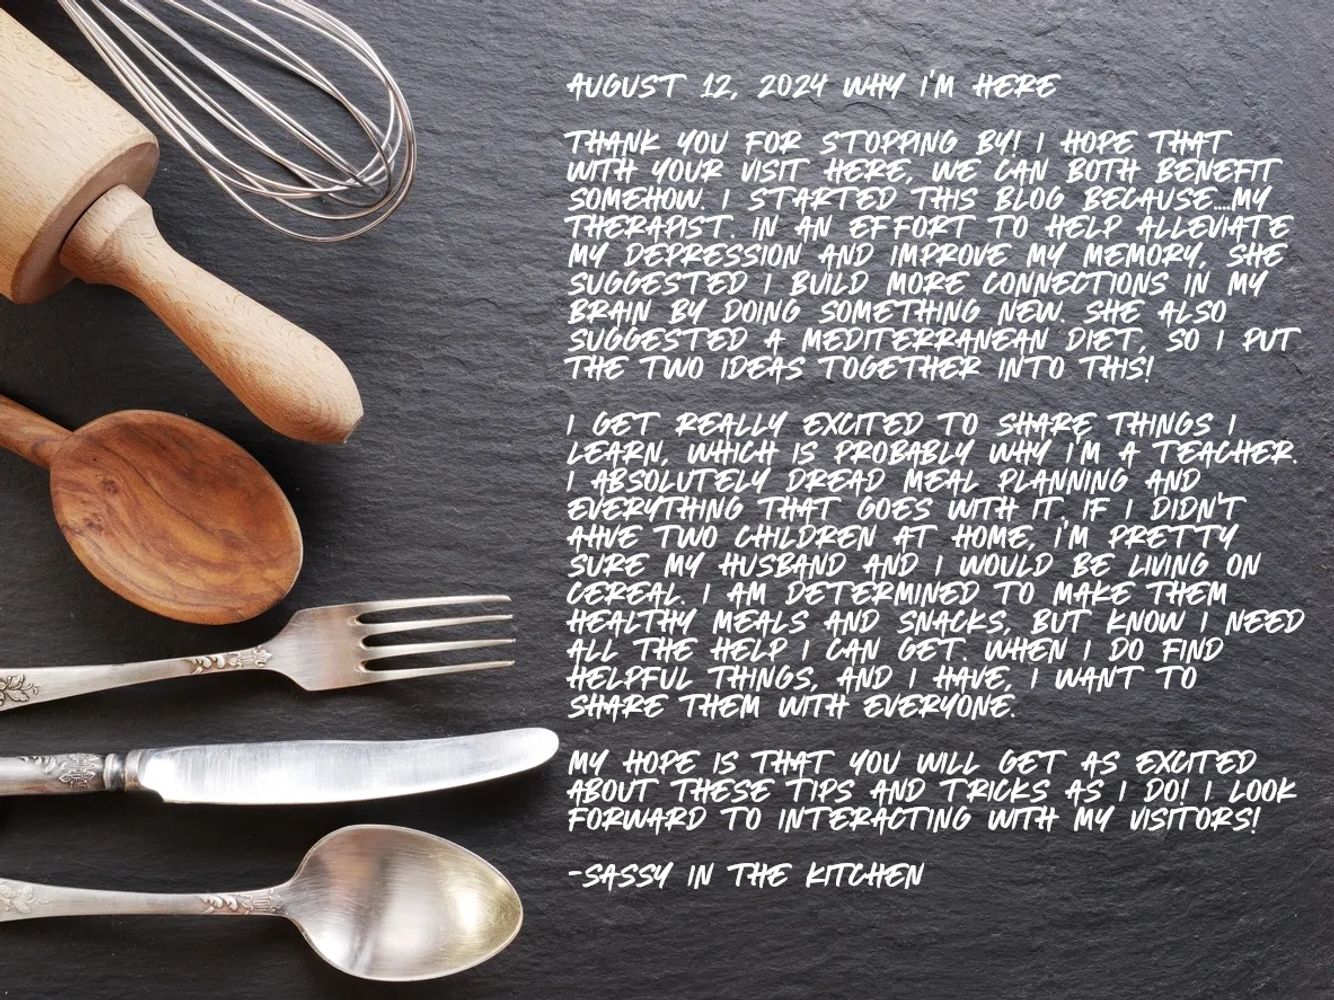 AUGUST 12, 2024 WHY I'M HERE
THANK YOU FOR STOPPING BY! I HOPE THAT
WITH YOUR VISIT HERE, WE CAN BOTH BENEFIT
SOMEHOW. I STARTED THIS BLOG BECAUSE....MY
THERAPIST. IN AN EFFORT TO HELP ALLEVIATE
MY DEPRESSION AND IMPROVE MY MEMORY, SHE
SUGGESTED I BUILD MORE CONNECTIONS IN MY
BRAIN BY DOING SOMETHING NEW. SHE ALSO
SUGGESTED A MEDITERRANEAN DIET, SO I PUT
THE TWO IDEAS TOGETHER INTO THIS!
I GET REALLY EXCITED TO SHARE THINGS I
LEARN, WHICH IS PROBABLY WHY I'M A TEACHER.
I ABSOLUTELY DREAD MEAL PLANNING AND
EVERYTHING THAT GOES WITH IT. IF I DIDN'T
AHVE TWO CHILDREN AT HOME, I'M PRETTY
SURE MY HUSBAND AND I WOULD BE LIVING ON
CEREAL. I AM DETERMINED TO MAKE THEM
HEALTHY MEALS AND SNACKS, BUT KNOW I NEED
ALL THE HELP I CAN GET. WHEN I DO FIND
HELPFUL THINGS, AND I HAVE, I WANT TO
SHARE THEM WITH EVERYONE.
MY HOPE IS THAT YOU WILL GET AS EXCITED
ABOUT THESE TIPS AND TRICKS AS I DO! I LOOK
FORWARD TO INTERACTING WITH MY VISITORS!
-SASSY IN THE KITCHEN